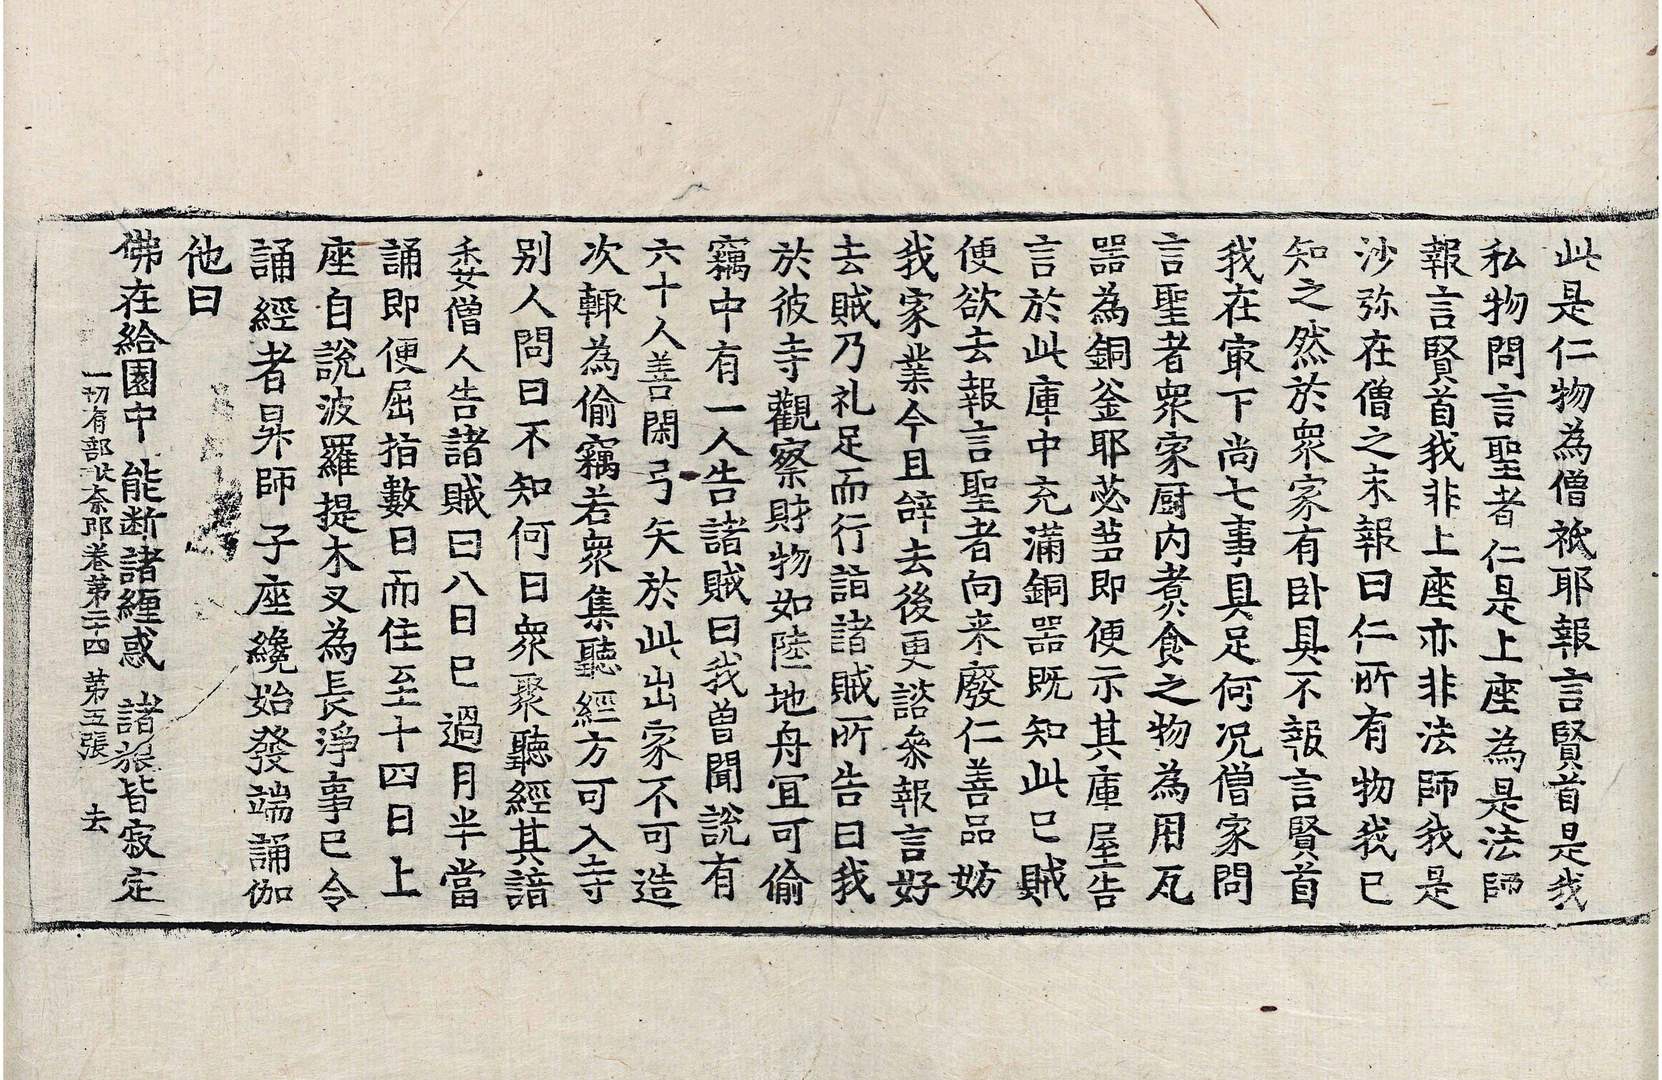 此是仁物為僧祇耶報言賢首是我
私物問言聖者仁是上座為是法師
報言賢首我非上座亦非法師我是
沙弥在僧之末報曰仁所有物我已
知之然於衆家有卧具不報言賢首
我在㝡下尚七事具足何况僧家問
言聖者衆家厨内煮食之物為用瓦
器為銅釜耶苾蒭即便示其庫屋告
言於此庫中充滿銅器既知此已賊
便欲去報言聖者向来廢仁善品妨
我家業今且辝去後更諮叅報言好
去賊乃礼足而行詣諸賊所告曰我
於彼寺觀察財物如陸地舟冝可偷
竊中有一人告諸賊曰我曾聞說有
六十人善閑弓矢於此出家不可造
次輙為偷竊若衆集聽經方可入寺
别人問曰不知何日衆聚聽經其諳
委僧人告諸賊曰八日已過月半當
誦即便屈指數日而住至十四日上
座自說波羅提木叉為長淨事已令
誦經者昇師子座纔始發端誦伽
他曰
佛在給園中 能断諸纏惑 諸根皆寂定
一切有部毗奈耶卷第二十四 第五張 去